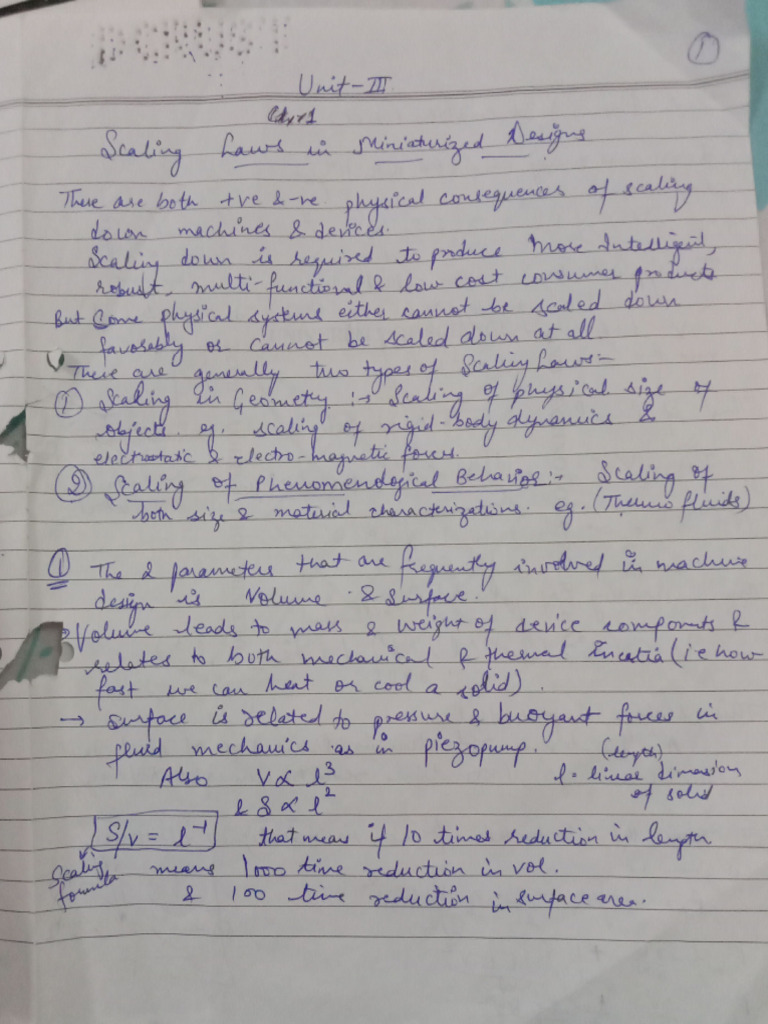 ①
Unit-III
Scaling Laws in Miniaturized Designs
There are both +ve & -ve physical consequences of scaling
down machines & devices.
Scaling down is required to produce More Intelligent,
robust, multi-functional & low cost consumer products
But Some physical systems either cannot be scaled down
favorably or cannot be scaled down at all
There are generally two types of Scaling Laws:-
① Scaling in Geometry :→ Scaling of physical size of
objects. eg. scaling of rigid-body dynamics &
electrostatic & electro-magnetic forces.
② Scaling of Phenomenological Behavior:- Scaling of
both size & material characterizations. eg. (Thermo fluids)
① The 2 parameters that are frequently involved in machine
design is Volume & Surface.
Volume leads to mass & weight of device components &
relates to both mechanical & thermal Inertia (i.e how
fast we can heat or cool a solid).
→ Surface is related to pressure & buoyant forces in
fluid mechanics as in piezopump.
Also V ∝ l³
& S ∝ l²
(length)
l = linear dimension
of solid
S/V = l⁻¹ that means if 10 times reduction in length
Scaling
formula
means 1000 time reduction in vol.
& 100 time reduction in surface area.